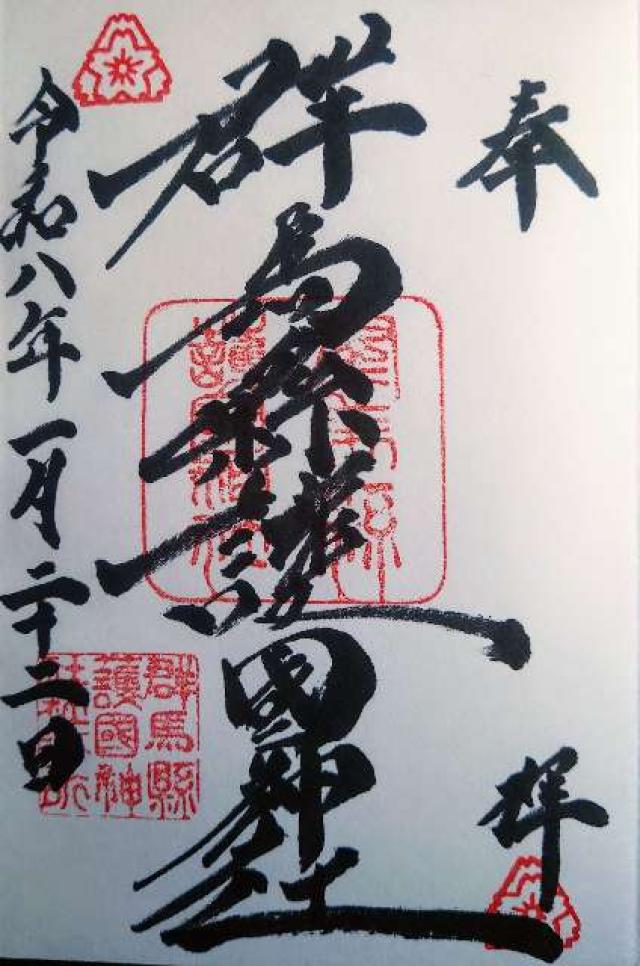 奉拝
群馬縣護國神社
令和八年一月二十二日
群馬縣
護國神
社社務所